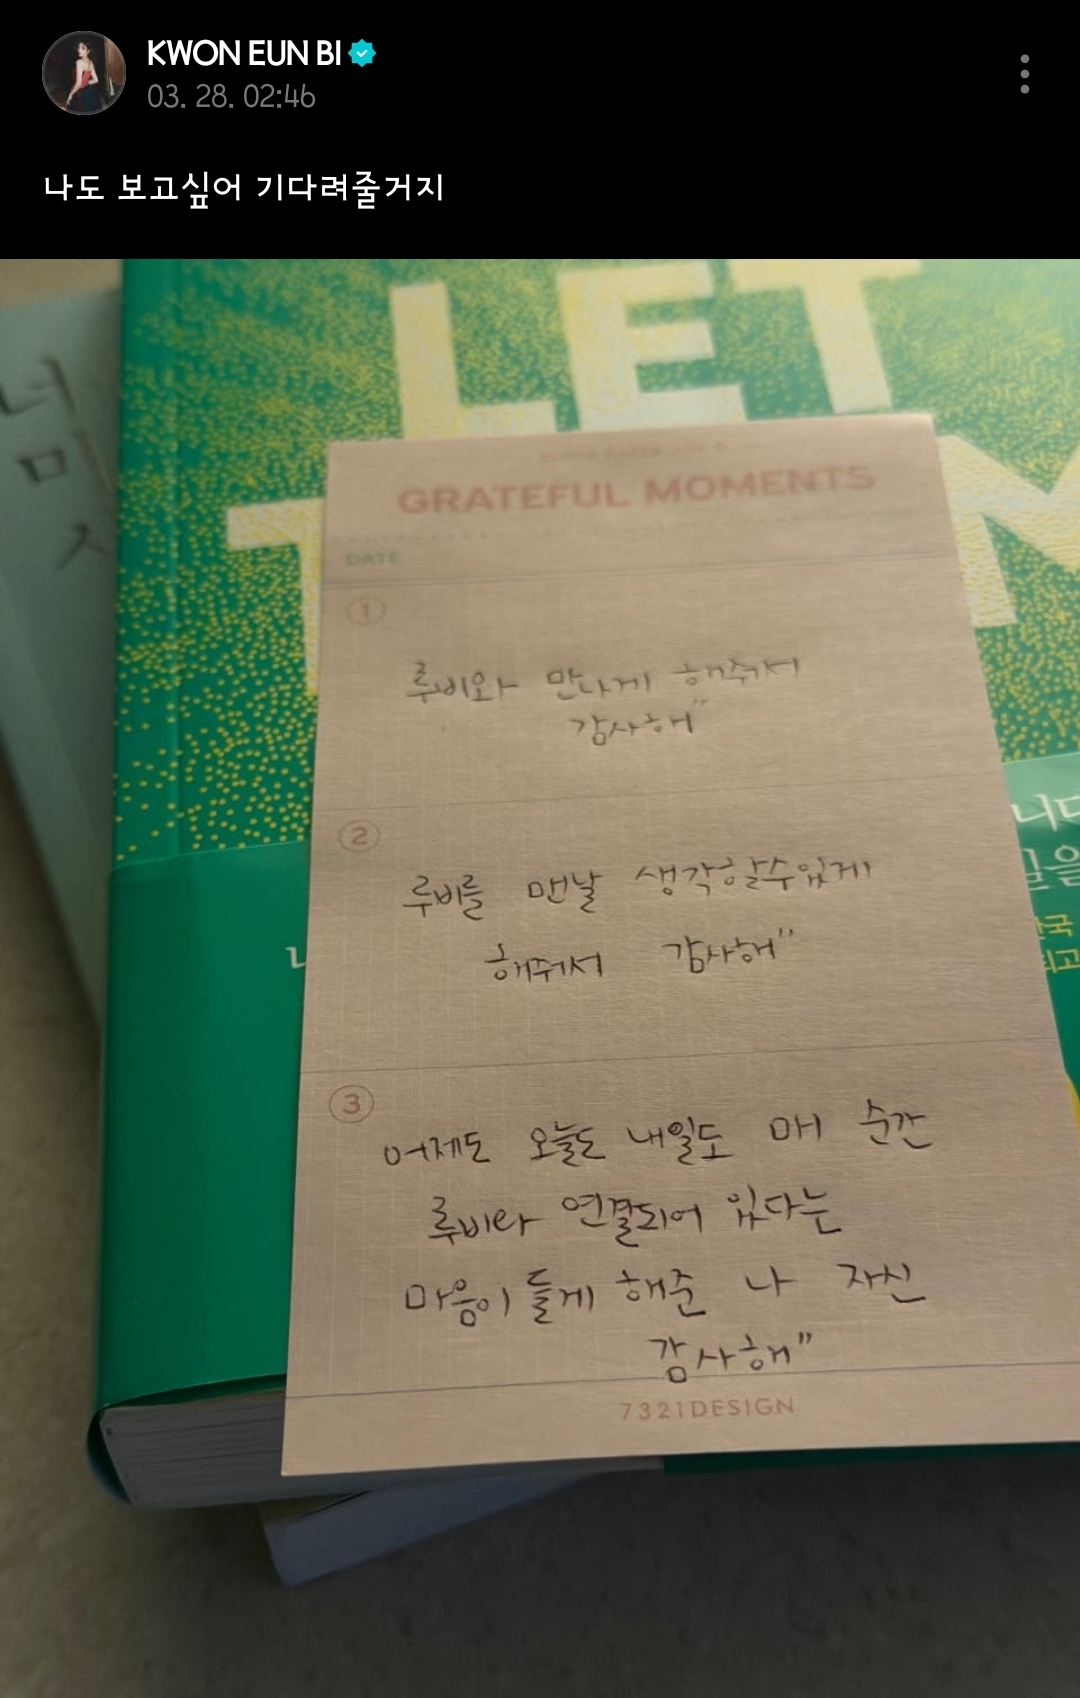 KWON EUN BI
03. 28. 02:46
나도 보고싶어 기다려줄거지
LET
T
GRATEFUL MOMENTS
DATE
1
루비와 만나게 해줘서
감사해"
2
루비를 맨날 생각할수있게
해줘서 감사해"
3
어제도 오늘도 내일도 매 순간
루비랑 연결되어 있다는
마음이 들게 해준 나 자신
감사해"
7321DESIGN